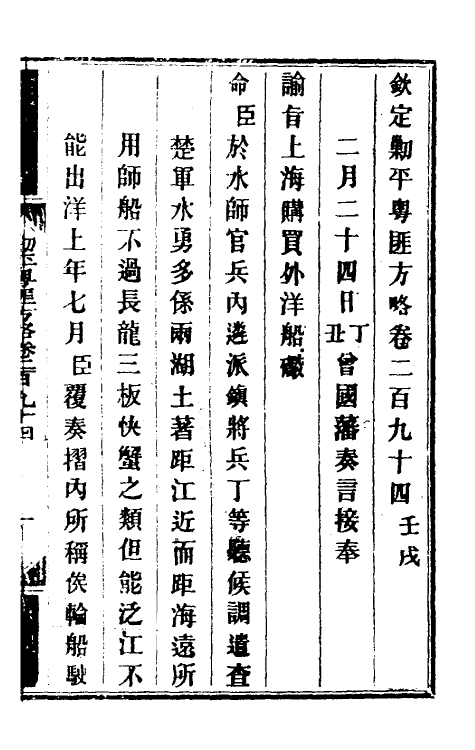 欽定勦平粵匪方略卷二百九十四 壬戌
二月二十四日丁丑曾國藩奏言接奉
諭旨上海購買外洋船礮
命臣於水師官兵內遴派鎮將兵丁等聽候調遣查
楚軍水勇多係兩湖土著距江近而距海遠所
用師船不過長龍三板快蟹之類但能泛江不
能出洋上年七月臣覆奏摺內所稱俟輪船駛